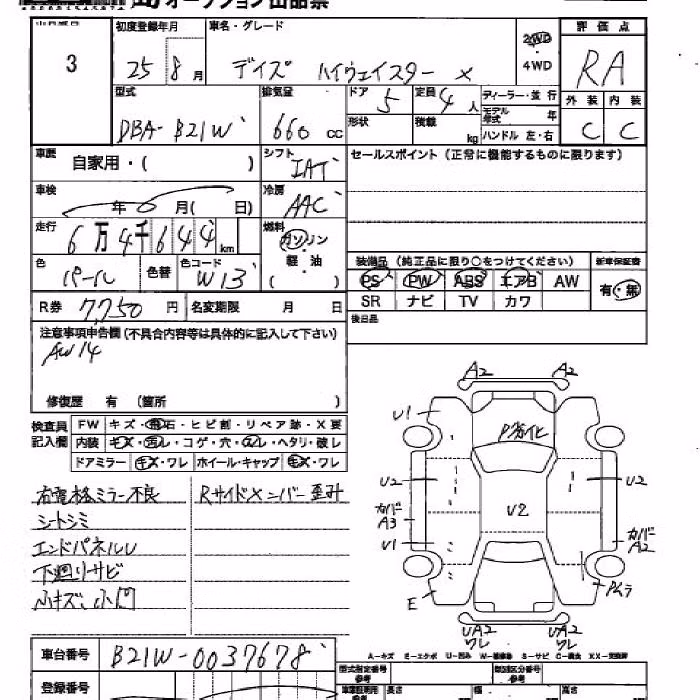 オークション出品票
初度登録年月 車名・グレード 評価点
3 25 8月 デイズ ハイウェイスター X 2WD ・4WD RA
型式 排気量 ドア 定員 ディーラー・並行 外装 内装
DBA-B21W 660 CC 5 4人 モデル年式 年 C C
形状 積載 kg ハンドル 左・右
車歴 自家用・( ) シフト IAT セールスポイント (正常に機能するものに限ります)
車検 年 月( 日) 冷房 AAC
走行 6万4千644km 燃料 ガソリン 軽・油 ( )
色 パール 色替 色コード W13 装備品 (純正品に限り○をつけてください) 新車保証書
PS PW ABS エアB AW 有・無
R券 7,750円 名変期限 月 日 SR ナビ TV カワ
注意事項申告欄(不具合内容等は具体的に記入して下さい) 後日品
AW14
修復歴 有 (箇所 )
検査員記入欄 FW キズ・飛石・ヒビ割・リペア跡・X要
内装 キズ・汚レ・コゲ・穴・スレ・ヘタリ・破レ
ドアミラー キズ・ワレ ホイール・キャップ キズ・ワレ
右電格ミラー不良 Rサイドメンバー歪み
シートシミ
エンドパネルU
下廻りサビ
小キズ、小凹
A2 A2
U1 P劣化
U2 U2 U2
カバーA3 カバーA2
U1
E Pムラ
UA2 ワレ UA2 ワレ
A-キズ E-エクボ U-凹み W-補修跡 S-サビ C-腐食 XX-交換済
車台番号 B21W-0037678
登録番号
型式指定番号 参考 類別区分番号 参考
長さ 幅 高さ